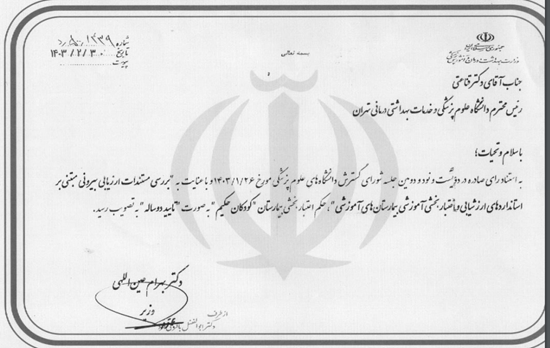 شماره ۱۲۳۹
تاریخ ۱۴۰۳/۲/۳۰
پیوست
بسمه تعالی
جمهوری اسلامی ایران
وزارت بهداشت، درمان و آموزش پزشکی
جناب آقای دکتر قناعتی
رئیس محترم دانشگاه علوم پزشکی و خدمات بهداشتی درمانی تهران
با سلام و تحیات؛
به استناد رای صادره در دویست و نود و دومین جلسه شورای گسترش دانشگاه‌های علوم پزشکی مورخ ۱۴۰۳/۱/۲۶ و با عنایت به "بررسی مستندات ارزیابی بیرونی مبتنی بر
استانداردهای ارزشیابی و اعتبار بخشی آموزشی بیمارستان های آموزشی"، حکم اعتبار بخشی بیمارستان "کودکان حکیم" به صورت "تایید دوساله" به تصویب رسید.
دکتر بهرام عین اللهی
وزیر
از طرف
دکتر ابوالفضل باقری فرد